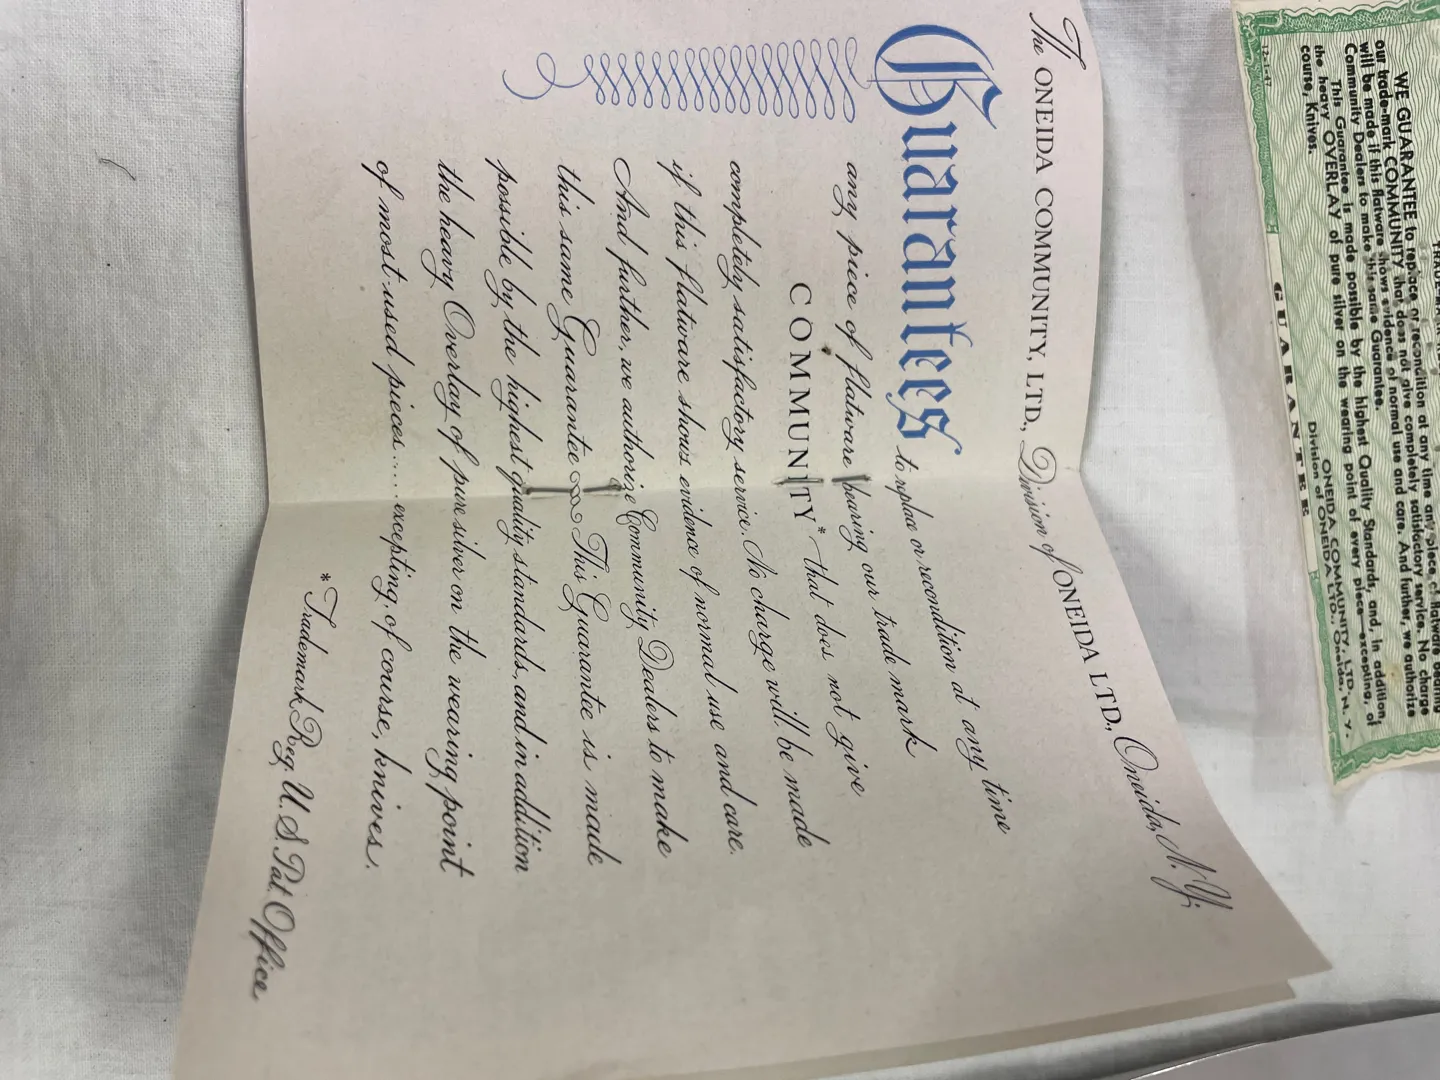 The ONEIDA COMMUNITY, LTD., Division of ONEIDA LTD., Oneida, N.Y.
Guarantees to replace or recondition at any time
any piece of flatware bearing our trade mark
COMMUNITY* that does not give
completely satisfactory service. No charge will be made
if this flatware shows evidence of normal use and care.
And further, we authorize Community Dealers to make
this same Guarantee This Guarantee is made
possible by the highest quality standards, and in addition
the heavy Overlay of pure silver on the wearing point
of most-used pieces.....excepting, of course, knives.
*Trademark Reg. U.S. Pat. Office
WE GUARANTEE to replace or recondition at any time any piece of flatware bearing
our trade-mark COMMUNITY that does not give completely satisfactory service. No charge
will be made if this flatware shows evidence of normal use and care. And further, we authorize
Community Dealers to make this same Guarantee.
This Guarantee is made possible by the highest Quality Standards, and, in addition,
the heavy OVERLAY of pure silver on the wearing point of every piece—excepting, of
course, Knives.
ONEIDA COMMUNITY, LTD.
Division of ONEIDA LTD., Oneida, N. Y.
12-1-47
GUARANTEE